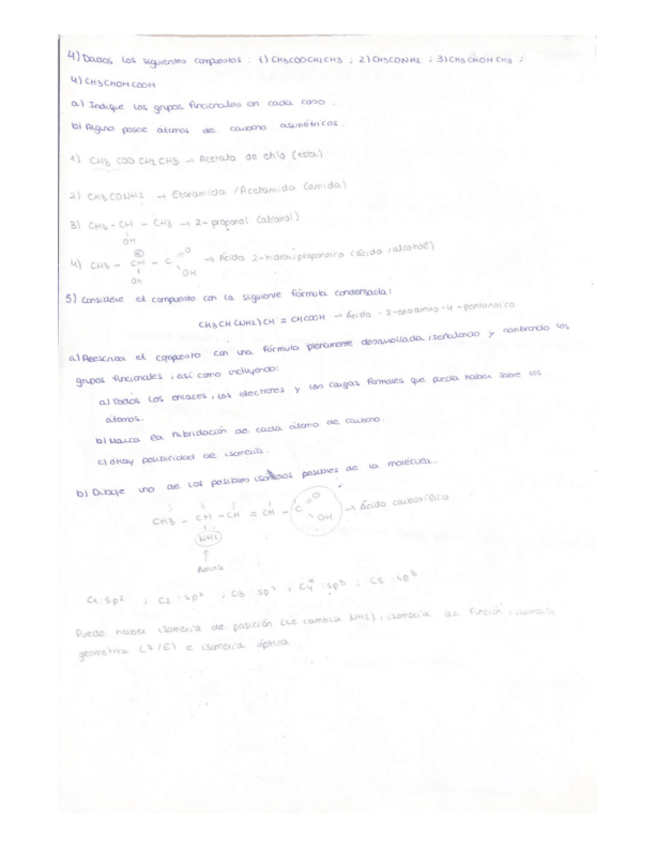 4) Dados los siguientes compuestos: 1) CH3COOCH2CH3 ; 2) CH3CONH2 ; 3) CH3CHOHCH3 ;
4) CH3CHOHCOOH
a) Indique los grupos funcionales en cada caso.
b) Alguno posee átomos de carbono asimétricos.
1) CH3 COO CH2 CH3 → Acetato de etilo (éster)
2) CH3CONH2 → Etanamida / Acetamida (amida)
3) CH3 - CH - CH3 → 2-propanol (alcohol)
OH
4) CH3 - CH - C → Ácido 2-hidroxipropanoico (ácido, alcohol)
O
OH
OH
5) Considere el compuesto con la siguiente fórmula condensada:
CH3CH(NH2)CH = CHCOOH → Ácido
a) Reescriba el compuesto con una fórmula plenamente desarrollada, señalando y nombrando los
grupos funcionales, así como incluyendo:
a) Todos los enlaces, los electrones y las cargas formales que pueda haber sobre los
átomos.
b) Marca la hibridación de cada átomo de carbono.
c) ¿Hay posibilidad de isomería.
b) Dibuje uno de los posibles isómeros posibles de la molécula.
CH3 - CH - CH = CH - C → Ácido carboxílico
O
OH
NH2
↑
Amina
C1: sp2 ; C2: sp2 ; C3: sp2 ; C4*: sp3 ; C5: sp3
Puede haber isomería de posición (se cambia NH2), isomería de función, isomería
geométrica (Z/E) e isomería óptica